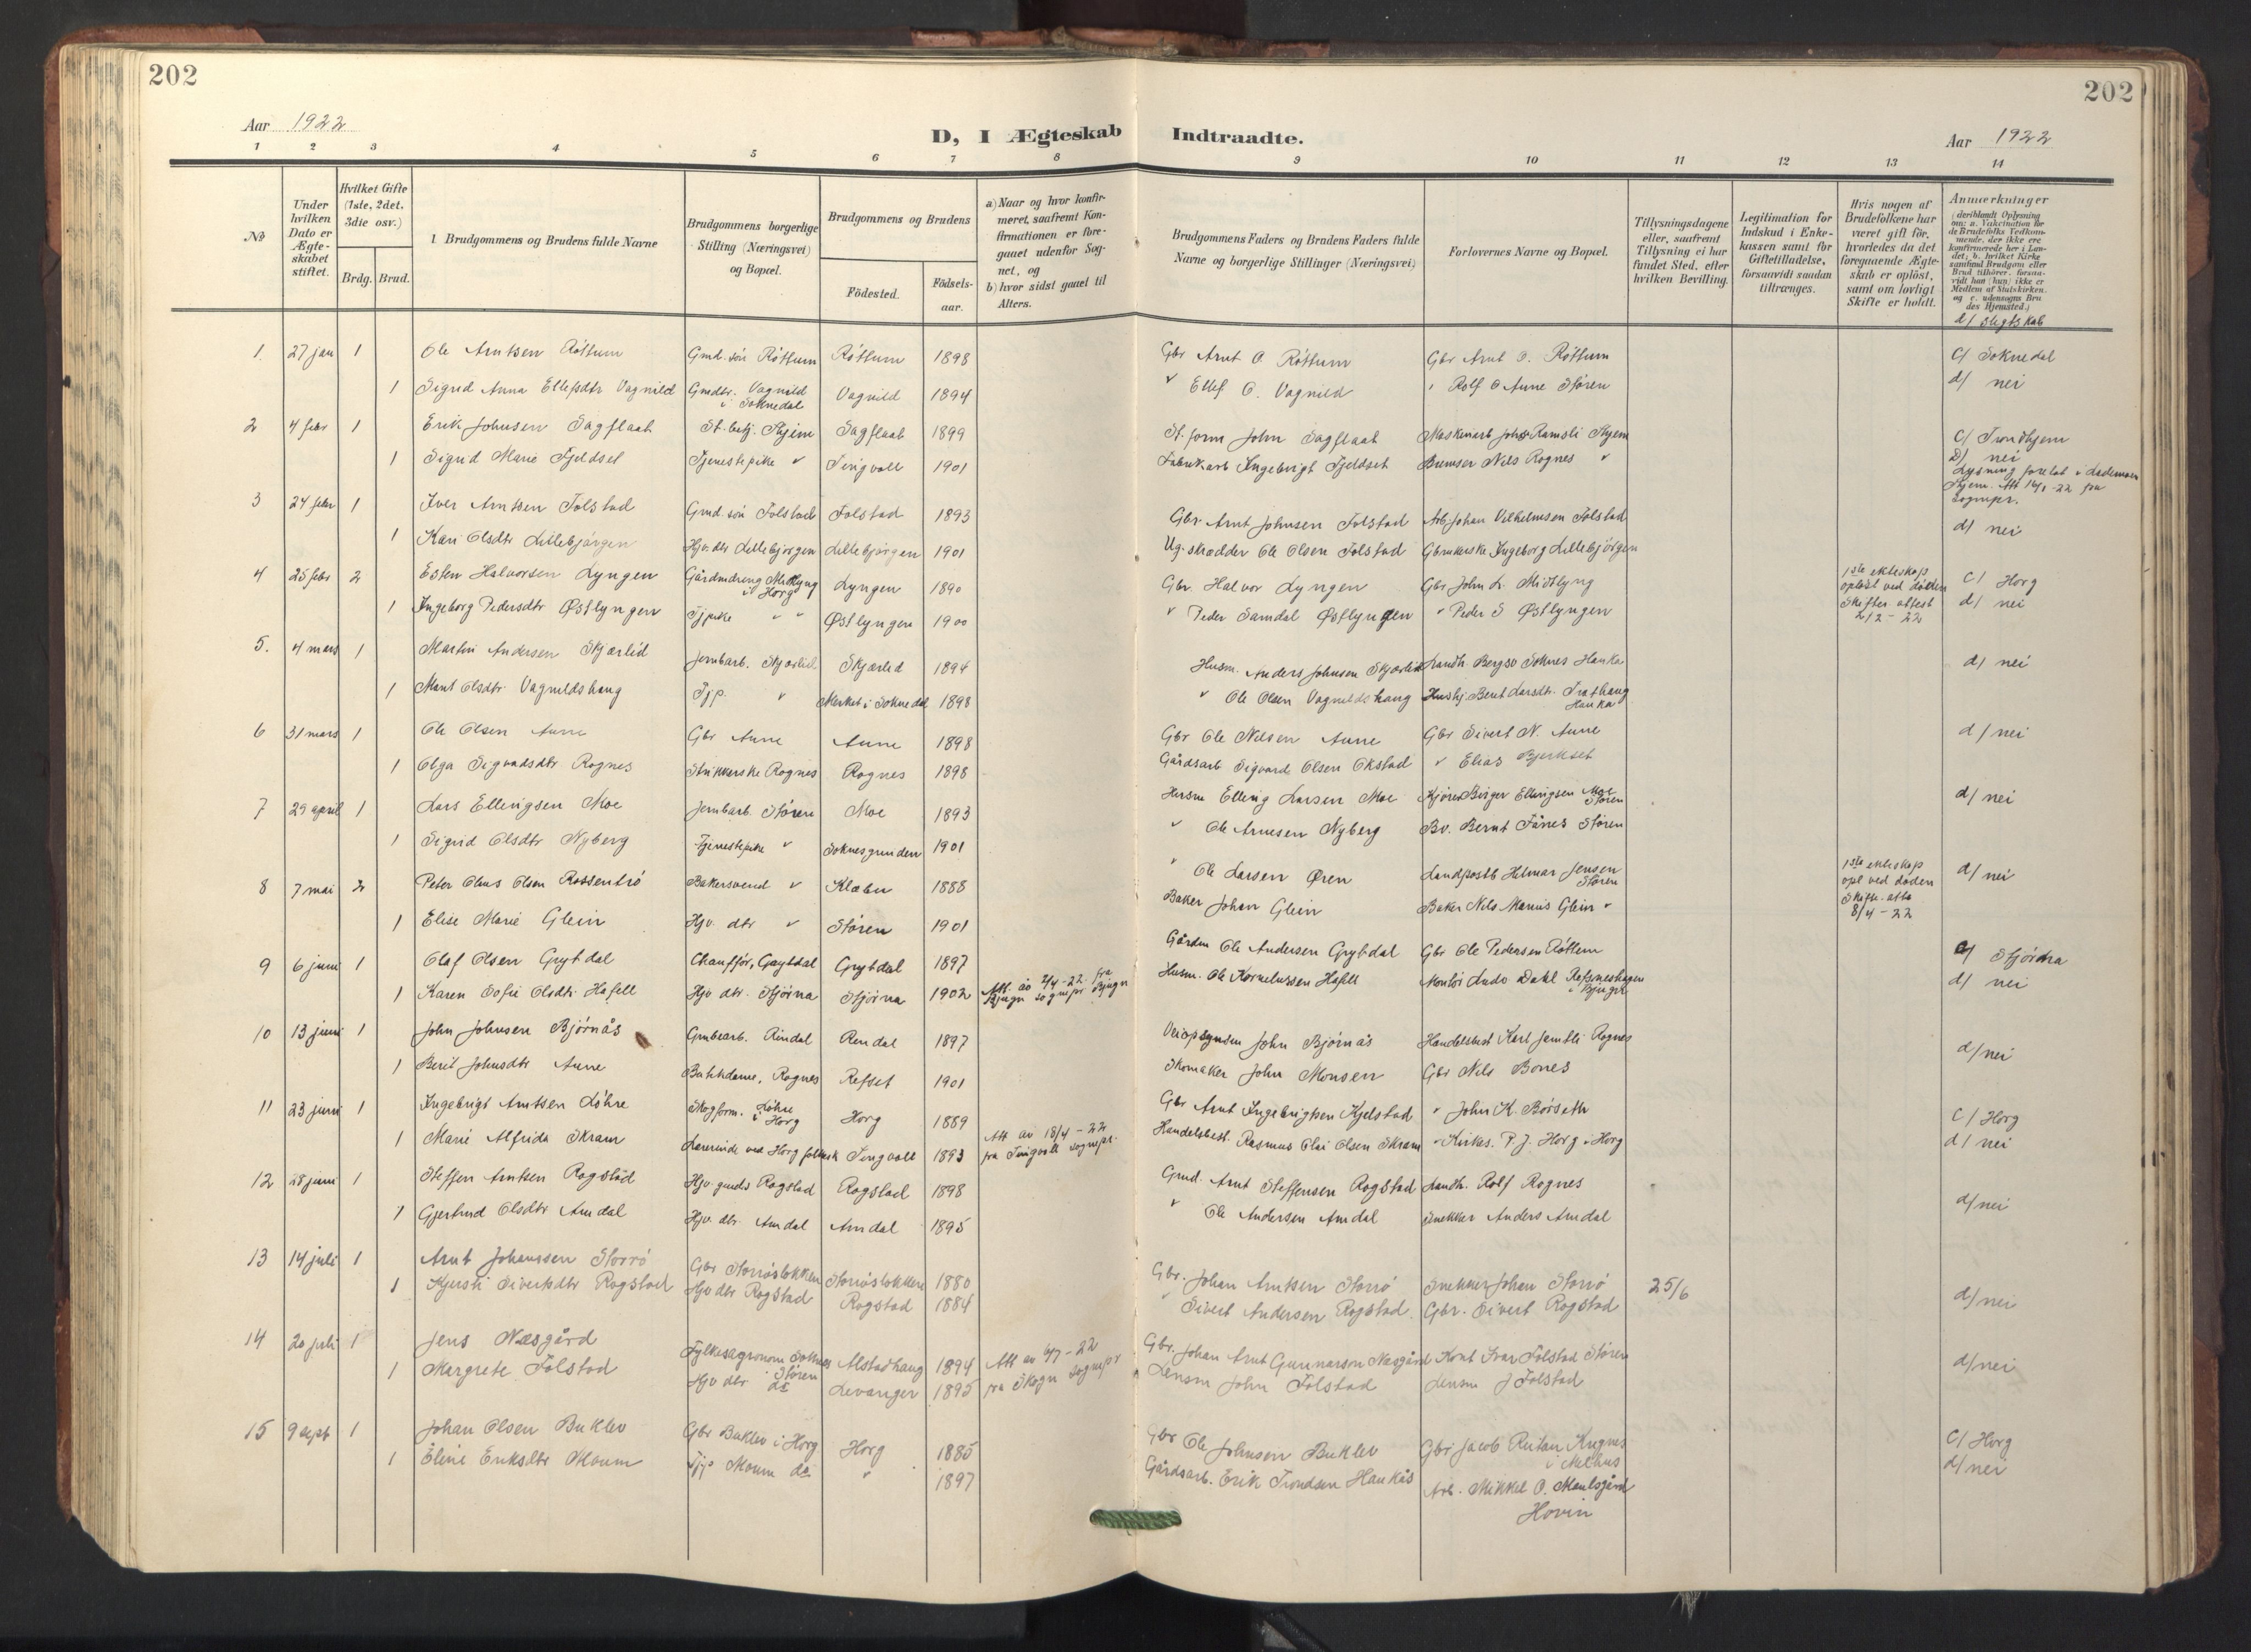 202
202
Aar 1922
D, I Ægteskab Indtraadte.
Aar 1922
1 2 3 4 5 6 7 8 9 10 11 12 13 14
No
Under hvilken Dato er Ægteskabet stiftet.
Hvilket Gifte (1ste, 2det, 3die osv.)
Brdg. Brud.
1 Brudgommens og Brudens fulde Navne
Brudgommens borgerlige Stilling (Næringsvei) og Bopæl.
Brudgommens og Brudens
Födested.
Födselsaar.
a) Naar og hvor konfirmeret, saafremt Konfirmationen er foregaaet udenfor Sognet, og
b) hvor sidst gaaet til Alters.
Brudgommens Faders og Brudens Faders fulde Navne og borgerlige Stillinger (Næringsvei)
Forlovernes Navne og Bopæl.
Tillysningsdagene eller, saafremt Tillysning ei har fundet Sted, efter hvilken Bevilling.
Legitimation for Indskud i Enkekassen samt for Giftetilladelse, forsaavidt saadan tiltrænges.
Hvis nogen af Brudefolkene har været gift för, hvorledes da det foregaaende Ægteskab er oplöst, samt om lovligt Skifte er holdt.
Anmærkninger
(deriblandt Oplysning om: a. Vaccination for de Brudefolks Vedkommende, der ikke ere konfirmerede her i Landet; b. hvilket Kirkesamfund Brudgom eller Brud tilhörer, forsaavidt han (hun) ikke er Medlem af Statskirken, og c. udensogns Brudes Hjemsted.)
d/ slegtskab
1. 27 jan 1 Ole Arntsen Röttum Gmd. sön Röttum Röttum 1898 Gbr Arnt O. Röttum Gbr Arnt O. Röttum C/ Soknedal
1 Sigrid Anna Ellefsdtr Vagnild Gmdtr. Vagnild i Soknedal Vagnild 1894 " Ellef O. Vagnild " Rolf O Aune Stören d/ nei
2 4 febr 1 Erik Johnsen Sagflaat St. betj. Thjem Sagflaat 1899 St. form John Sagflaat Maskinarb John Ramsli Thjem C/ Trondhjem
1 Sigrid Marie Fjeldset Tjenestepike " Tingvoll 1901 Fabrikarb Ingebrigt Fjeldset Bremser Nils Rognes " D/ nei
Lysning foretat i Lademoen Thjem. Att 16/1-22 fra sognepr.
3 24 febr 1 Iver Arntsen Folstad Gmd. sön Folstad Folstad 1893 Gbr. Arnt Johnsen Folstad Arb. Johan Vilhelmsen Folstad
1 Kari Olsdtr Lillebjörgen Hjv. dtr Lillebjörgen Lillebjörgen 1901 Ug. skrædder Ole Olsen Folstad Gbrukerske Ingeborg Lillebjörgen d/ nei
4 25 febr 2 Esten Halvorsen Lyngen Gårdmdreng Midtlyng i Horg Lyngen 1890 Gbr. Halvor Lyngen Gbr John L. Midtlyng 1ste ekteskap oplöst ved döden Skifter. attest 2/2-22 C/ Horg
1 Ingeborg Pedersdtr Østlyngen Tjpike " " Østlyngen 1900 " Peder Samdal Østlyngen " Peder S Østlyngen d/ nei
5. 4 mars 1 Martin Andersen Skjærlid Jernbarb. Skjærlid Skjærlid 1894 Husm. Anders Johnsen Skjærlid Landh. Bergsv Soknes Hauka d/ nei
1 Marit Olsdtr Vagnildshaug Tjp. " Merket i Soknedal 1898 " Ole Olsen Vagnildshaug Hushj. Berit Larsdtr. Hauka
6 31 mars 1 Ole Olsen Aune Gbr Aune Aune 1898 Gbr Ole Nilsen Aune Gbr Sivert N. Aune d/ nei
1 Olga Sigvardsdtr Rognes Strikkerske Rognes Rognes 1898 Gårdsarb Sigvard Olsen Okstad " Elias Bjerkset
7 29 april 1 Lars Ellingsen Moe Jernbarb. Stören Moe 1893 Husm Elling Larsen Moe Kjörer Birger Ellingsen Moe Stören d/ nei
1 Sigrid Olsdtr Nyberg Tjenestepike " Soknesgrunden 1901 " Ole Arnesen Nyberg Bv. Bernt Fånes Stören
8 7 mai 2 Peter Olaus Olsen Rossentrö Bakersvend " Klæbu 1888 " Ole Larsen Øren Landpostb Hilmar Jensen Stören 1ste ekteskap opl ved döden Skifte. atte 8/4-22 d/ nei
1 Elise Marie Glein Hjv. dtr " Stören 1901 Baker Johan Glein Baker Nils Marius Glein "
9 6 juni 1 Olaf Olsen Grytdal Chaufför, Grytdal Grytdal 1897 Gårdm Ole Andersen Grytdal Gbr Ole Pedersen Röttem C/ Stjörna
1 Karen Sofie Olsdtr Hofell Hjv dtr. Stjörna Stjörna 1902 Att. av 2/4-22 fra Bjugn sognepr Bjugn Husm. Ole Kornelussen Hofell Montör Ludv Dahl Refsneshagen i Bjugn d/ nei
10 13 juni 1 John Johnsen Björnås Grubearb. Rindal Rindal 1897 Veiopsynsm John Bjørnås Handelsbest Karl Jemtli Rognes d/ nei
1 Berit Johnsdtr Aune Butikdame, Rognes Refset 1901 Skomaker John Monsen Gbr Nils Bones
11 23 juni 1 Ingebrigt Arntsen Löhre Skogform. Löhre i Horg Horg 1889 Gbr Arnt Ingebrigtsen Kjelstad " John K. Börseth C/ Horg
1 Marie Alfrida Skram Lærerinde ved Horg folkesk Tingvoll 1893 Att av 18/4-22 fra Tingvoll sognepr. Handelsbest. Rasmus Olai Olsen Skram " Kirkes. P. J. Horg i Horg d/ nei
12 28 juni 1 Steffen Arntsen Rogstad Hjv. gmds Rogstad Rogstad 1898 Gmd. Arnt Steffensen Rogstad Landh. Rolf Rognes
1 Gjertrud Olsdtr Amdal Hjv. dtr. Amdal Amdal 1895 " Ole Andersen Amdal Snekker Anders Amdal d/ nei
13 14 juli 1 Arnt Johansen Storrö Gbr Storröslökken Storröslökken 1880 Gbr. Johan Arntsen Storrö Snekker Johan Storrö 25/6
1 Kjersti Sivertsdtr Rogstad Hjv dtr Rogstad Rogstad 1884 " Sivert Andersen Rogstad. Gbr. Sivert Rogstad d/ nei
14 20 juli 1 Jens Næsgård Fylkesagronom Soknes i Stören Alstadhaug 1894 Att av 6/7-22 fra Skogn sognepr Gbr. Johan Arnt Gunnarson Næsgård Kont Ivar Folstad Stören d/ nei
1 Margrete Folstad Hjv dtr do Levanger 1895 Lensm John Folstad Lensm J Folstad
15 9 sept 1 Johan Olsen Buklev Gbr Buklev i Horg Horg 1885 Gbr Ole Johnsen Buklev Gbr Jacob Reitan Krognes i Melhus C/ Horg
1 Eline Eriksdtr Moum Tjp Moum do " 1897 Gårdsarb. Erik Trondsen Haukås Arb. Mikkel O. Maulsgård Hovin d/ nei